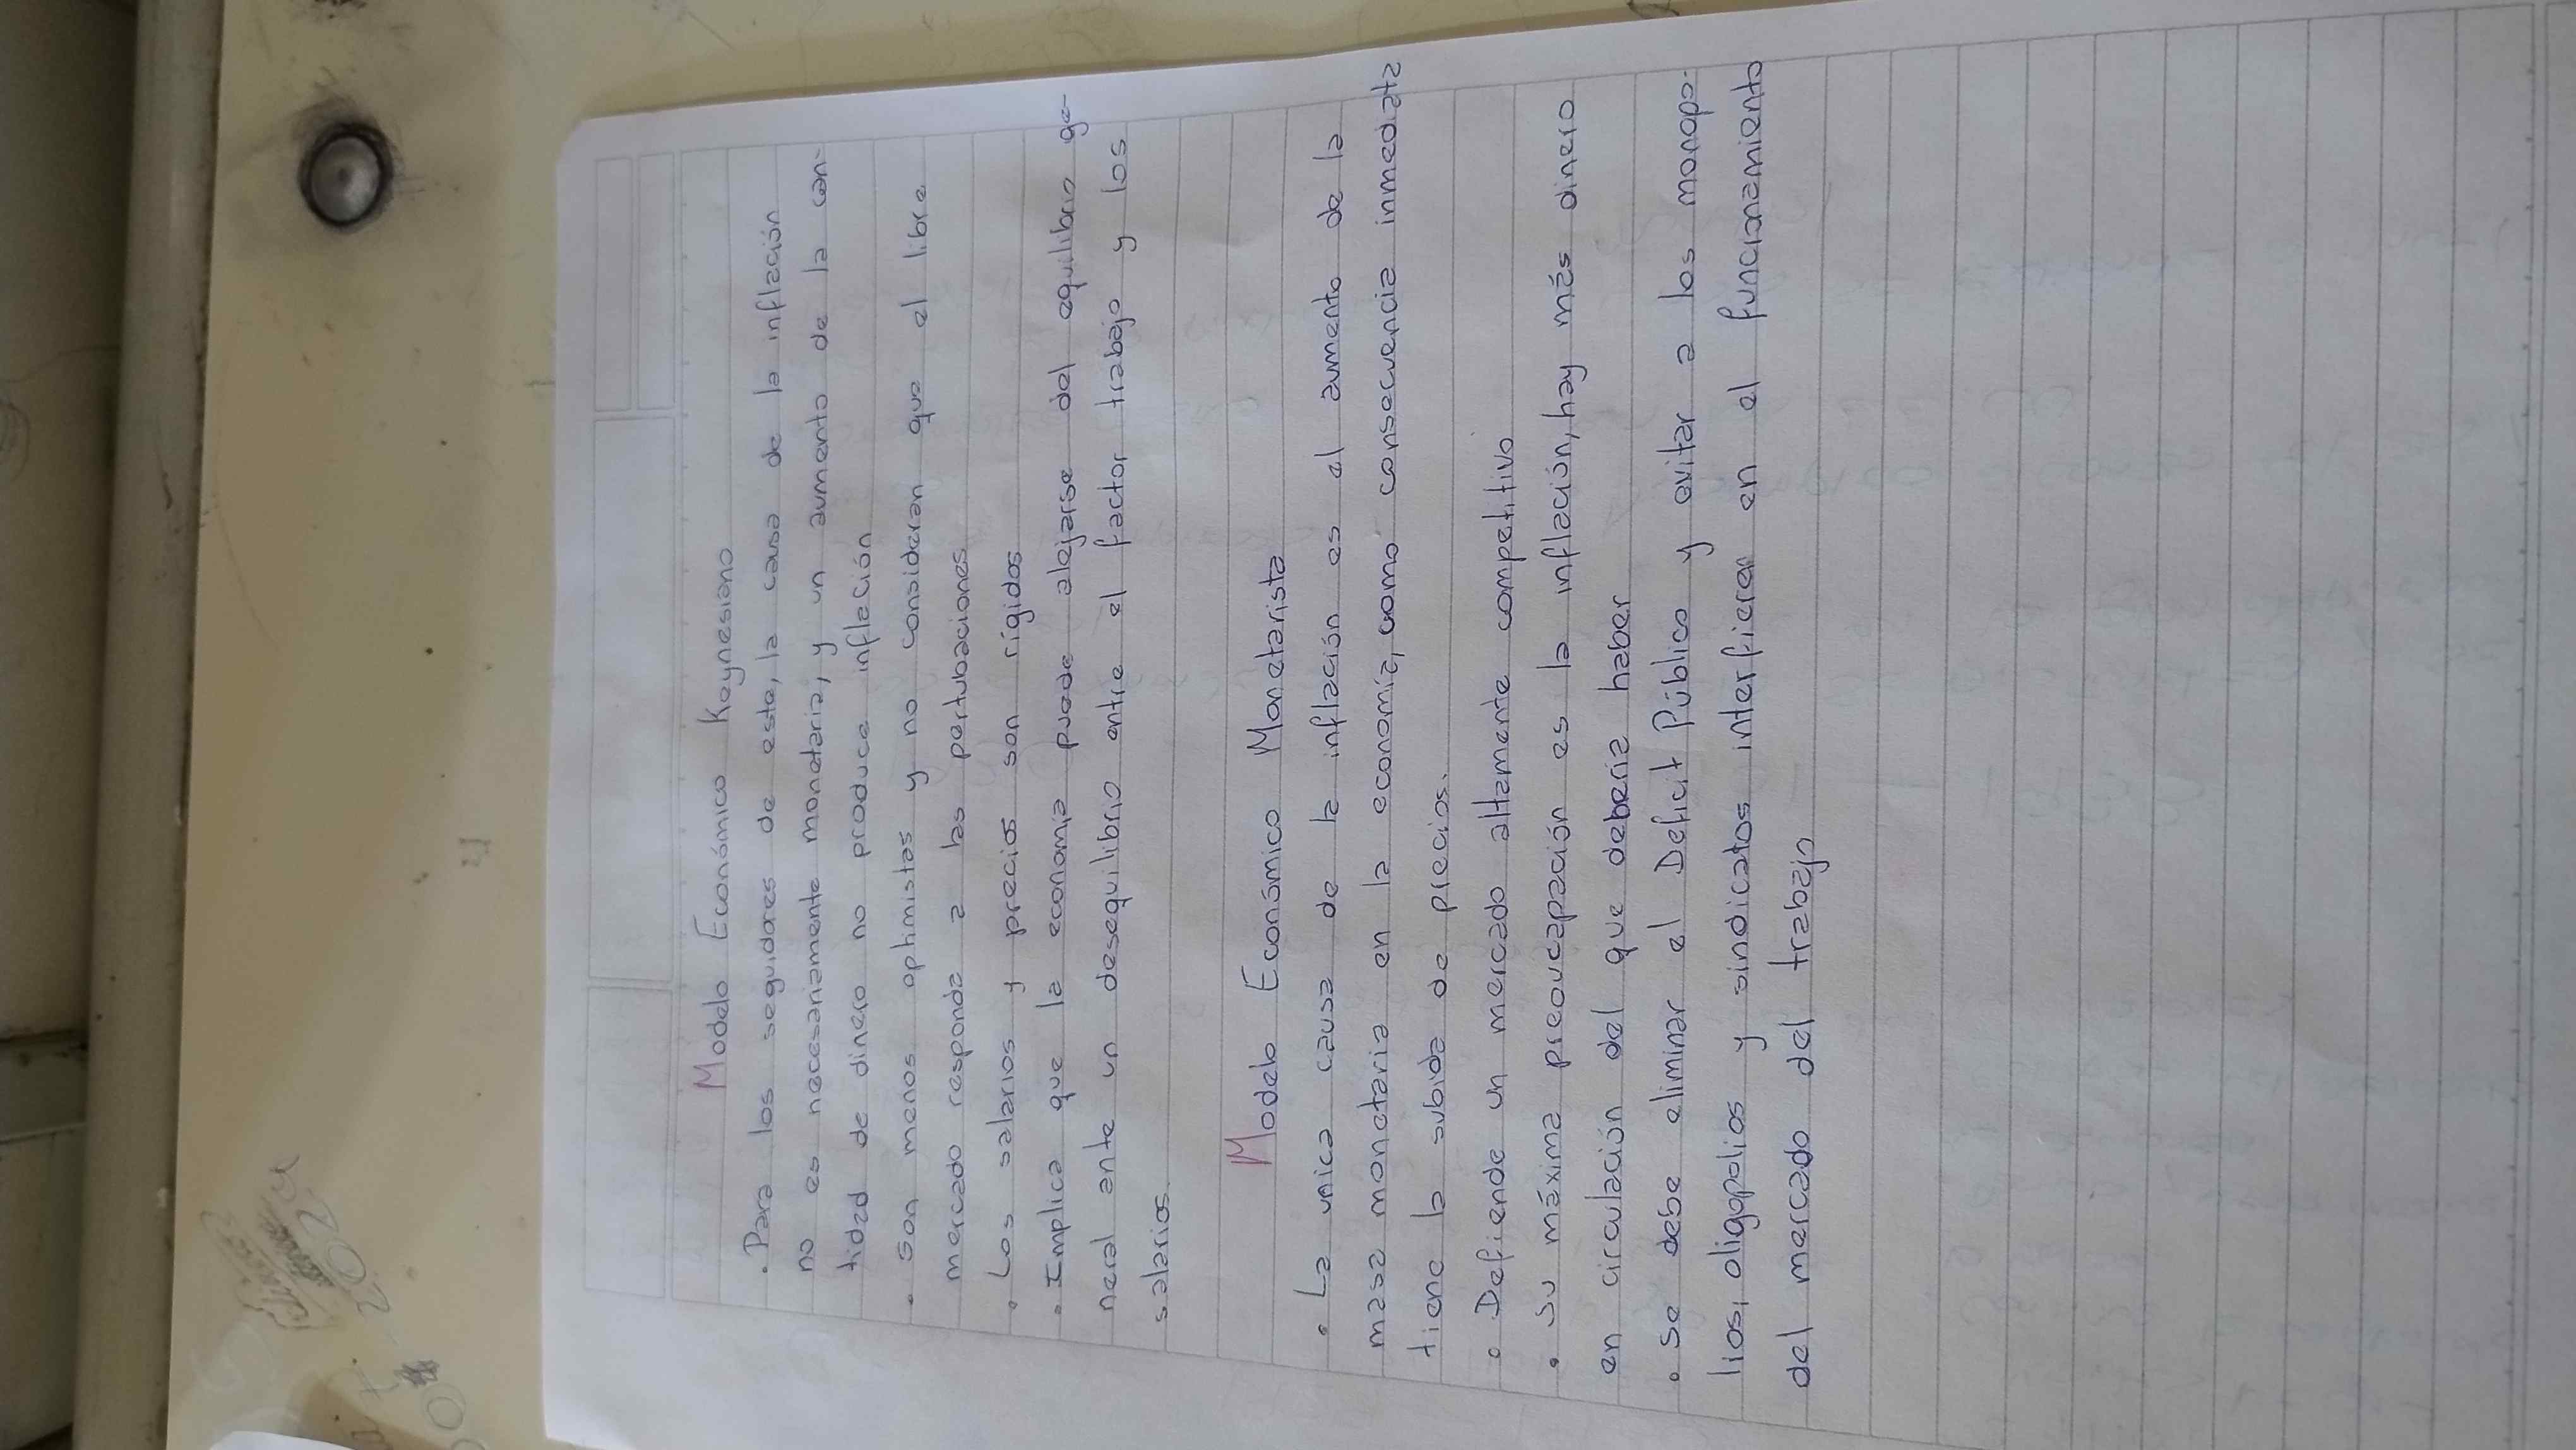 Modelo Económico Keynesiano
. Para los seguidores de este, la causa de la inflación
no es necesariamente monetaria, y un aumento de la can-
tidad de dinero no produce inflación
. Son menos optimistas y no consideran que el libre
mercado responda a las pertubaciones
. Los salarios y precios son rígidos
. Implica que la economia puede alejarse del equilibrio ge-
neral ante un desequilibrio entre el factor trabajo y los
salarios.
Modelo Económico Monetarista
. La unica causa de la inflación es el aumento de la
masa monetaria en la economía, como consecuencia inmediata
tiene la subida de precios.
. Defiende un mercado altamente competitivo
. Su máxima preoucapación es la inflación, hay más dinero
en circulación del que debería haber
. Se debe eliminar el Deficit Público y evitar a los monopo-
lios, oligopolios y sindicatos interfieran en el funcionamiento
del mercado del trabajo